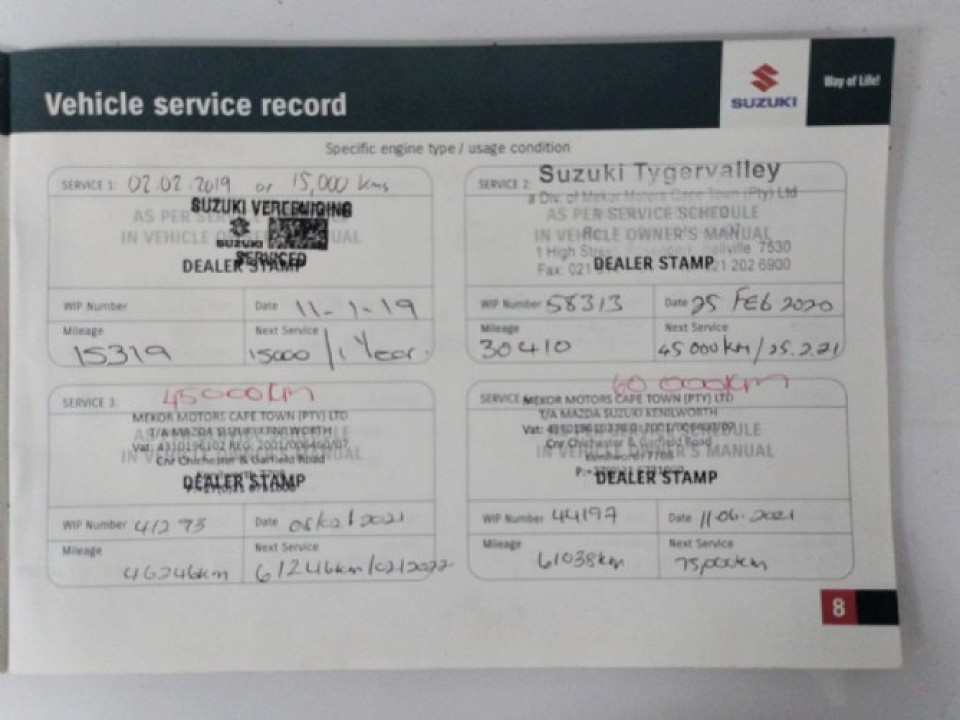 Vehicle service record
SUZUKI
Way of Life!
Specific engine type / usage condition
SERVICE 1: 02.02.2019 or 15,000 kms
SUZUKI VEREENIGING
AS PER
IN VEHICLE
SUZUKI
SERVICED
DEALER STAMP
WIP Number
Date 11-1-19
Mileage
15319
Next Service
15000 / 1 Year
SERVICE 2: Suzuki Tygervalley
a Div. of Mekor Motors Cape Town (Pty) Ltd
AS PER SERVICE SCHEDULE
IN VEHICLE OWNER'S MANUAL
1 High Street 7530
Fax: 021 DEALER STAMP 021 202 6900
WIP Number 58313
Date 25 FEB 2020
Mileage
30410
Next Service
45 000km / 25.2.21
SERVICE 3: 45000km
MEKOR MOTORS CAPE TOWN (PTY) LTD
T/A MAZDA SUZUKI KENILWORTH
Vat: 4310196102 REG: 2001/006460/07
Cnr Chichester & Garfield Road
DEALER STAMP
WIP Number 41293
Date 05/02/2021
Mileage
46246km
Next Service
61246km/02/2022
SERVICE 60 000km
MEKOR MOTORS CAPE TOWN (PTY) LTD
T/A MAZDA SUZUKI KENILWORTH
Vat: 4310196102 REG: 2001/006460/07
Cnr Chichester & Garfield Road
IN VEHICLE OWNER'S MANUAL
DEALER STAMP
WIP Number 44197
Date 11.06.2021
Mileage
61038km
Next Service
75,000km
8